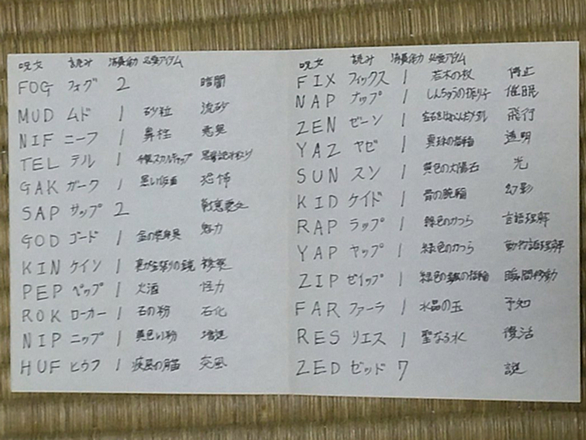 呪文 読み 消費体力 必要アイテム
FOG フォグ 2 暗闇
MUD ムド 1 砂粒 流砂
NIF ニーフ 1 鼻栓 悪臭
TEL テル 1
GAK ガーク 1 黒い仮面 恐怖
SAP サップ 2
GOD ゴード 1 金の装身具 魅力
KIN ケイン 1
PEP ペップ 1 火酒 怪力
ROK ローカー 1 石の粉 石化
NIP ニップ 1 黄色い粉 増速
HUF ヒゥフ 1 疾風の角笛 突風
呪文 読み 消費体力 必要アイテム
FIX フィックス 1 若木の枝 停止
NAP ナップ 1 しんちゅうの振り子 催眠
ZEN ゼーン 1 飛行
YAZ ヤゼ 1 真珠の指輪 透明
SUN スン 1 黄色の太陽石 光
KID ケイド 1 骨の腕輪 幻影
RAP ラップ 1 緑色のかつら 言語理解
YAP ヤップ 1 緑色のかつら 動物語理解
ZIP ゼイップ 1 緑色の鉱の指輪 瞬間移動
FAR ファーラ 1 水晶の玉 予知
RES リエス 1 聖なる水 復活
ZED ゼッド 7 謎